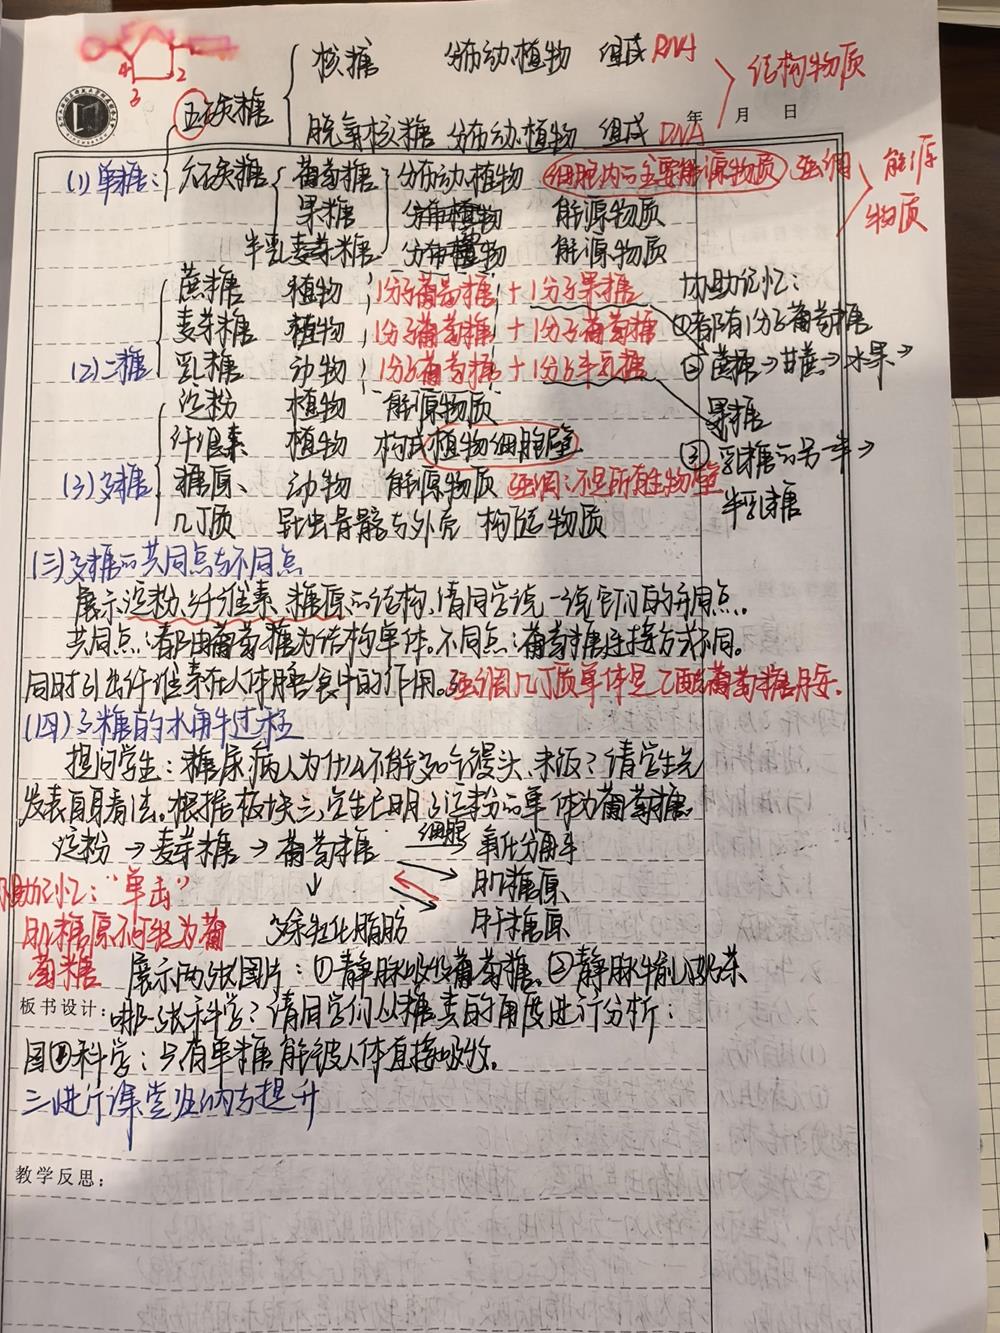 核糖 分布动、植物 组成RNA
结构物质
五碳糖
4 3 2
脱氧核糖 分布动、植物 组成DNA
年 月 日
(1)单糖: 六碳糖 葡萄糖 分布动、植物 细胞内的主要能源物质 强调
能源物质
果糖 分布植物 能源物质
半乳麦芽糖 分布植物 能源物质
蔗糖 植物 1分子葡萄糖+1分子果糖
协助记忆:
麦芽糖 植物 1分子葡萄糖+1分子葡萄糖
①都有1分子葡萄糖
(2)二糖 乳糖 动物 1分子葡萄糖+1分子半乳糖
②蔗糖→甘蔗→水果→
果糖
淀粉 植物 能源物质
纤维素 植物 构成植物细胞壁
③乳糖的另一半→
半乳糖
(3)多糖 糖原、 动物 能源物质 强调:不是所有生物壁
几丁质 导出骨骼与外壳 构造物质
(三)多糖的共同点与不同点
展示淀粉、纤维素、糖原的结构,请同学说一说它们的异同点。
共同点:都由葡萄糖为结构单体。不同点:葡萄糖连接方式不同。
同时引出纤维素在人体膳食中的作用。强调几丁质单体是乙酰葡萄糖胺.
(四)多糖的水解过程
提问学生:糖尿病人为什么不能多吃馒头、米饭?请学生先
发表自身看法。根据板块三,学生已明了淀粉的单体为葡萄糖。
淀粉→麦芽糖→葡萄糖 细胞 氧化分解
协助记忆:"单击" 肌糖原
肌糖原不可转为葡 多余转化脂肪 肝糖原
萄糖 展示两张图片:①静脉吸收葡萄糖、②静脉输
板书设计: 哪一张科学?请同学们从糖类的角度进行分析:
图 科学:只有单糖能被人体直接吸收。
三、进行课堂归纳与提升
教学反思: